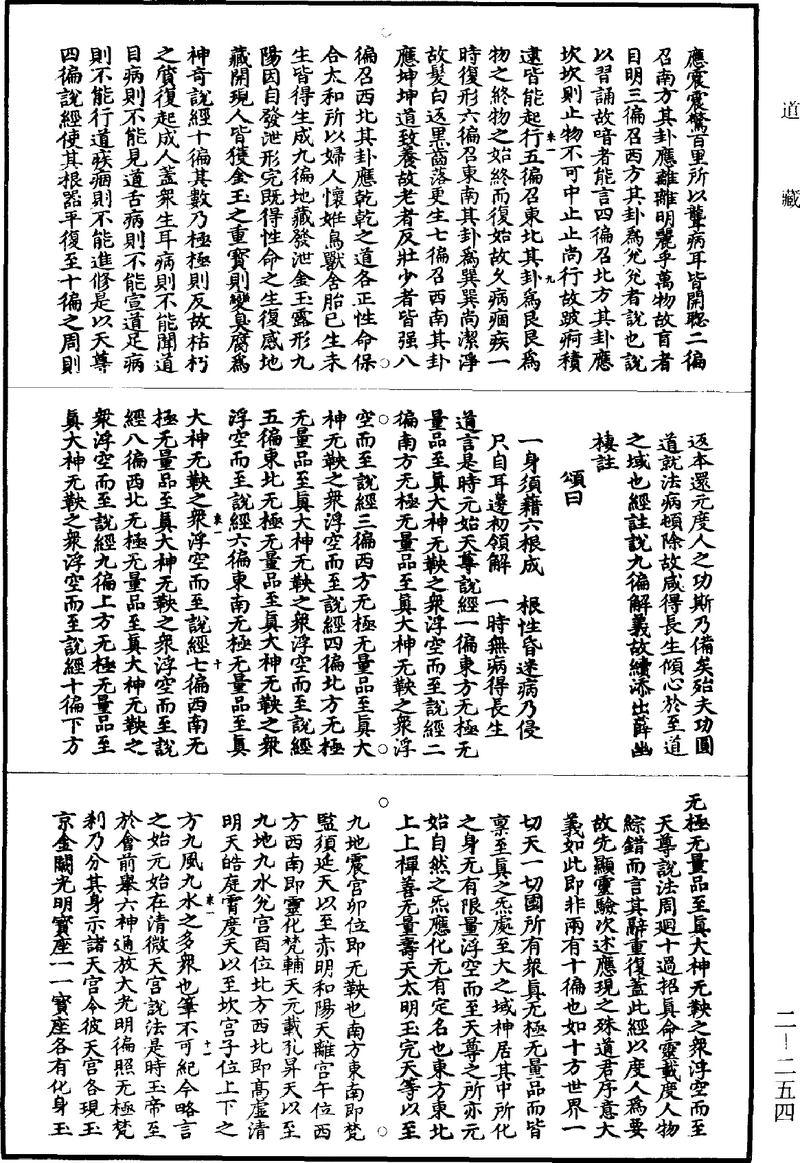 應震震驚百里所以聾病耳皆開聰二徧
召南方其卦應離離明麗乎萬物故盲者
目明三徧召西方其卦爲兊兊者說也說
以習誦故喑者能言四徧召北方其卦應
坎坎則止物不可中止止尚行故跛痾積
逮皆能起行五徧召東北其卦爲艮艮爲
物之終物之始終而復始故久病痼疾一
時復形六徧召東南其卦爲巽巽尚潔淨
故髮白返黒齒落更生七徧召西南其卦
應坤坤道致養故老者反壯少者皆强八
徧召西北其卦應乾乾之道各正性命保
合太和所以婦人懷妊鳥獸含胎已生未
生皆得生成九徧地藏發泄金玉露形九
陽因自發泄形完既得性命之生復感地
藏開現人皆獲金玉之重寳則變臭腐爲
神奇說經十徧其數乃極極則反故枯朽
之質復起成人蓋衆生耳病則不能聞道
目病則不能見道舌病則不能宣道足病
則不能行道疾痼則不能進修是以天尊
四徧說經使其根器平復至十徧之周則
返本還元度人之功斯乃備矣殆夫功圓
道就法病頓除故咸得長生傾心於至道
之域也經註說九徧解義故續添出薛幽
棲註
頌曰
一身須藉六根成　根性昏迷病乃侵
只自耳邊初領解　一時無病得長生
道言是時元始天尊說經一徧東方无極无
量品至眞大神无鞅之衆浮空而至說經二
徧南方无極无量品至眞大神无鞅之衆浮
空而至說經三徧西方无極无量品至眞大
神无鞅之衆浮空而至說經四徧北方无極
无量品至眞大神无鞅之衆浮空而至說經
五徧東北无極无量品至眞大神无鞅之衆
浮空而至說經六徧東南无極无量品至眞
大神无鞅之衆浮空而至說經七徧西南无
極无量品至眞大神无鞅之衆浮空而至說
經八徧西北无極无量品至眞大神无鞅之
衆浮空而至說經九徧上方无極无量品至
眞大神无鞅之衆浮空而至說經十徧下方
无極无量品至眞大神无鞅之衆浮空而至
天尊說法周迴十過招眞命靈載度人物
綜錯而言其辭重復蓋此經以度人爲要
故先顯靈驗次述應現之殊道君序意大
義如此即非兩有十徧也如十方世界一
切天一切國所有衆眞无極无量品而皆
禀至眞之炁處至大之域神居其中所化
之身无有限量浮空而至天尊之所亦元
始自然之炁應化无有定名也東方東北
上上禪善无量壽天太明玉完天等以至
九地震宫卯位即无鞅也南方東南即梵
監須延天以至赤明和陽天離宫午位西
方西南即靈化梵輔天元載孔昇天以至
九地九水兊宫酉位北方西北即髙虛清
明天皓庭霄度天以至坎宫子位上下之
方九風九水之多衆也筆不可紀今略言
之始元始在清微天宫說法是時玉帝至
於會前舉六神通放大光明徧照无極梵
刹乃分其身示諸天宫令彼天宫各現玉
京金闕光明寳座一一寳座各有化身玉
道藏
二—二五四